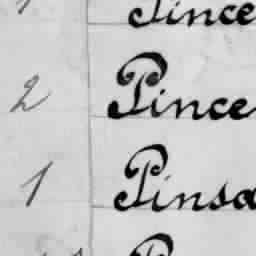 Pince
2 Pince
1 Pinsa